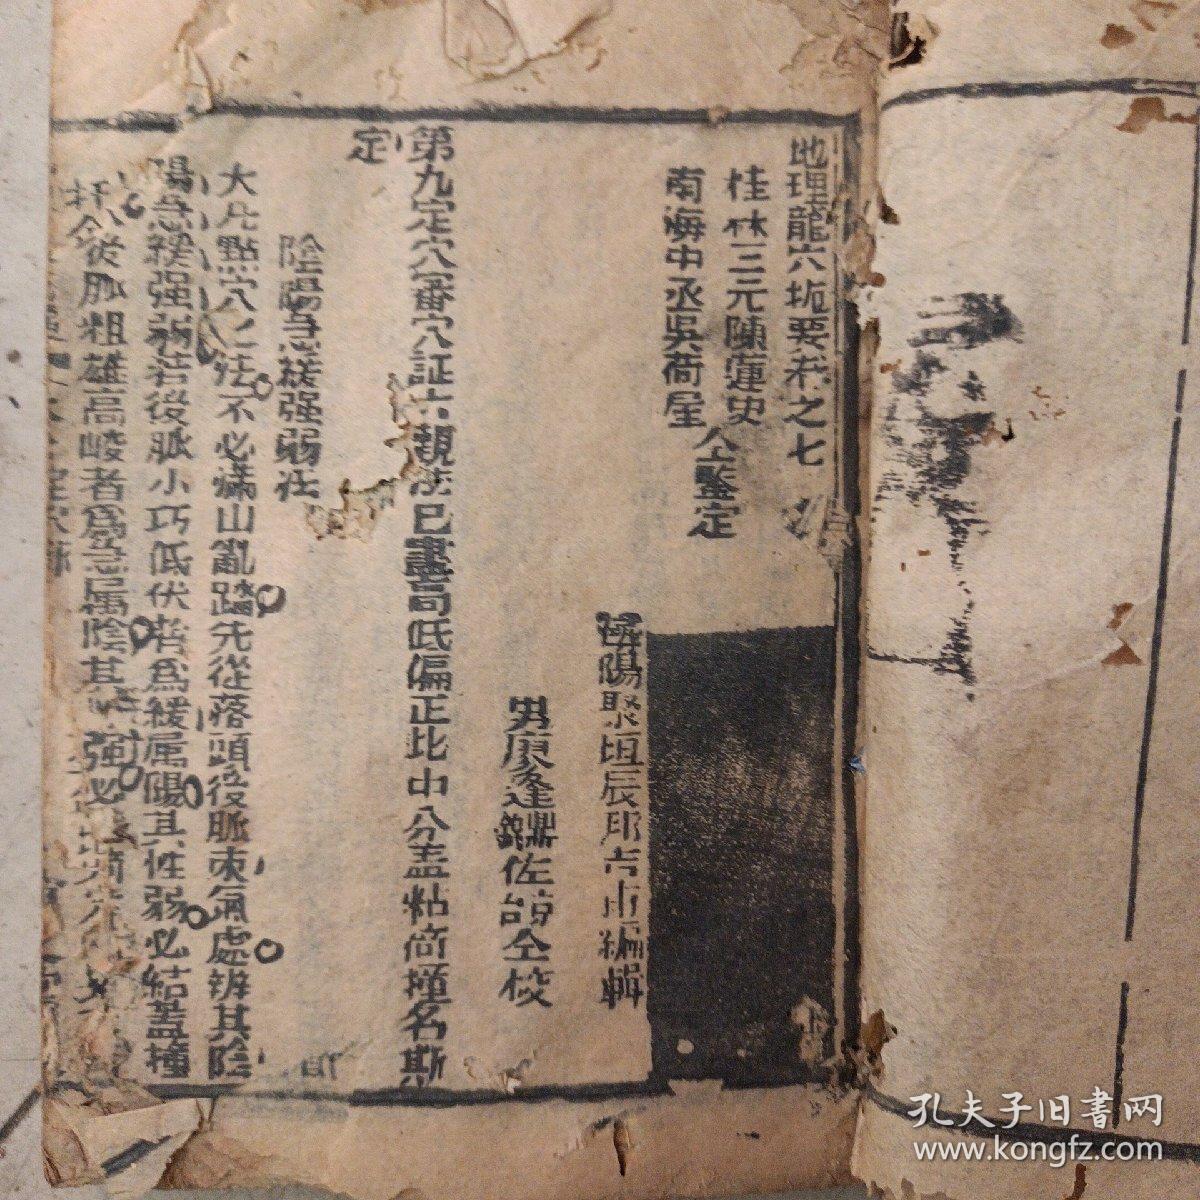 地理龍穴扼要卷之七
桂林三元陳蓮史
南海中丞吳荷屋
仝鑒定
陽聚垣辰 編輯
男庚逢 佐 仝校
第九定穴審穴証六親法已盡高低偏正比中分盖粘倚撞名斯
定
陰陽急緩强弱法
大凢點穴之法不必滿山亂踏先從落頭後脈束氣處辨其陰
陽急緩强弱若後脈小巧低伏者爲緩属陽其性弱必結蓋撞
從脈粗雄高峻者爲急属陰其 强必
孔夫子旧書网
www.kongfz.com